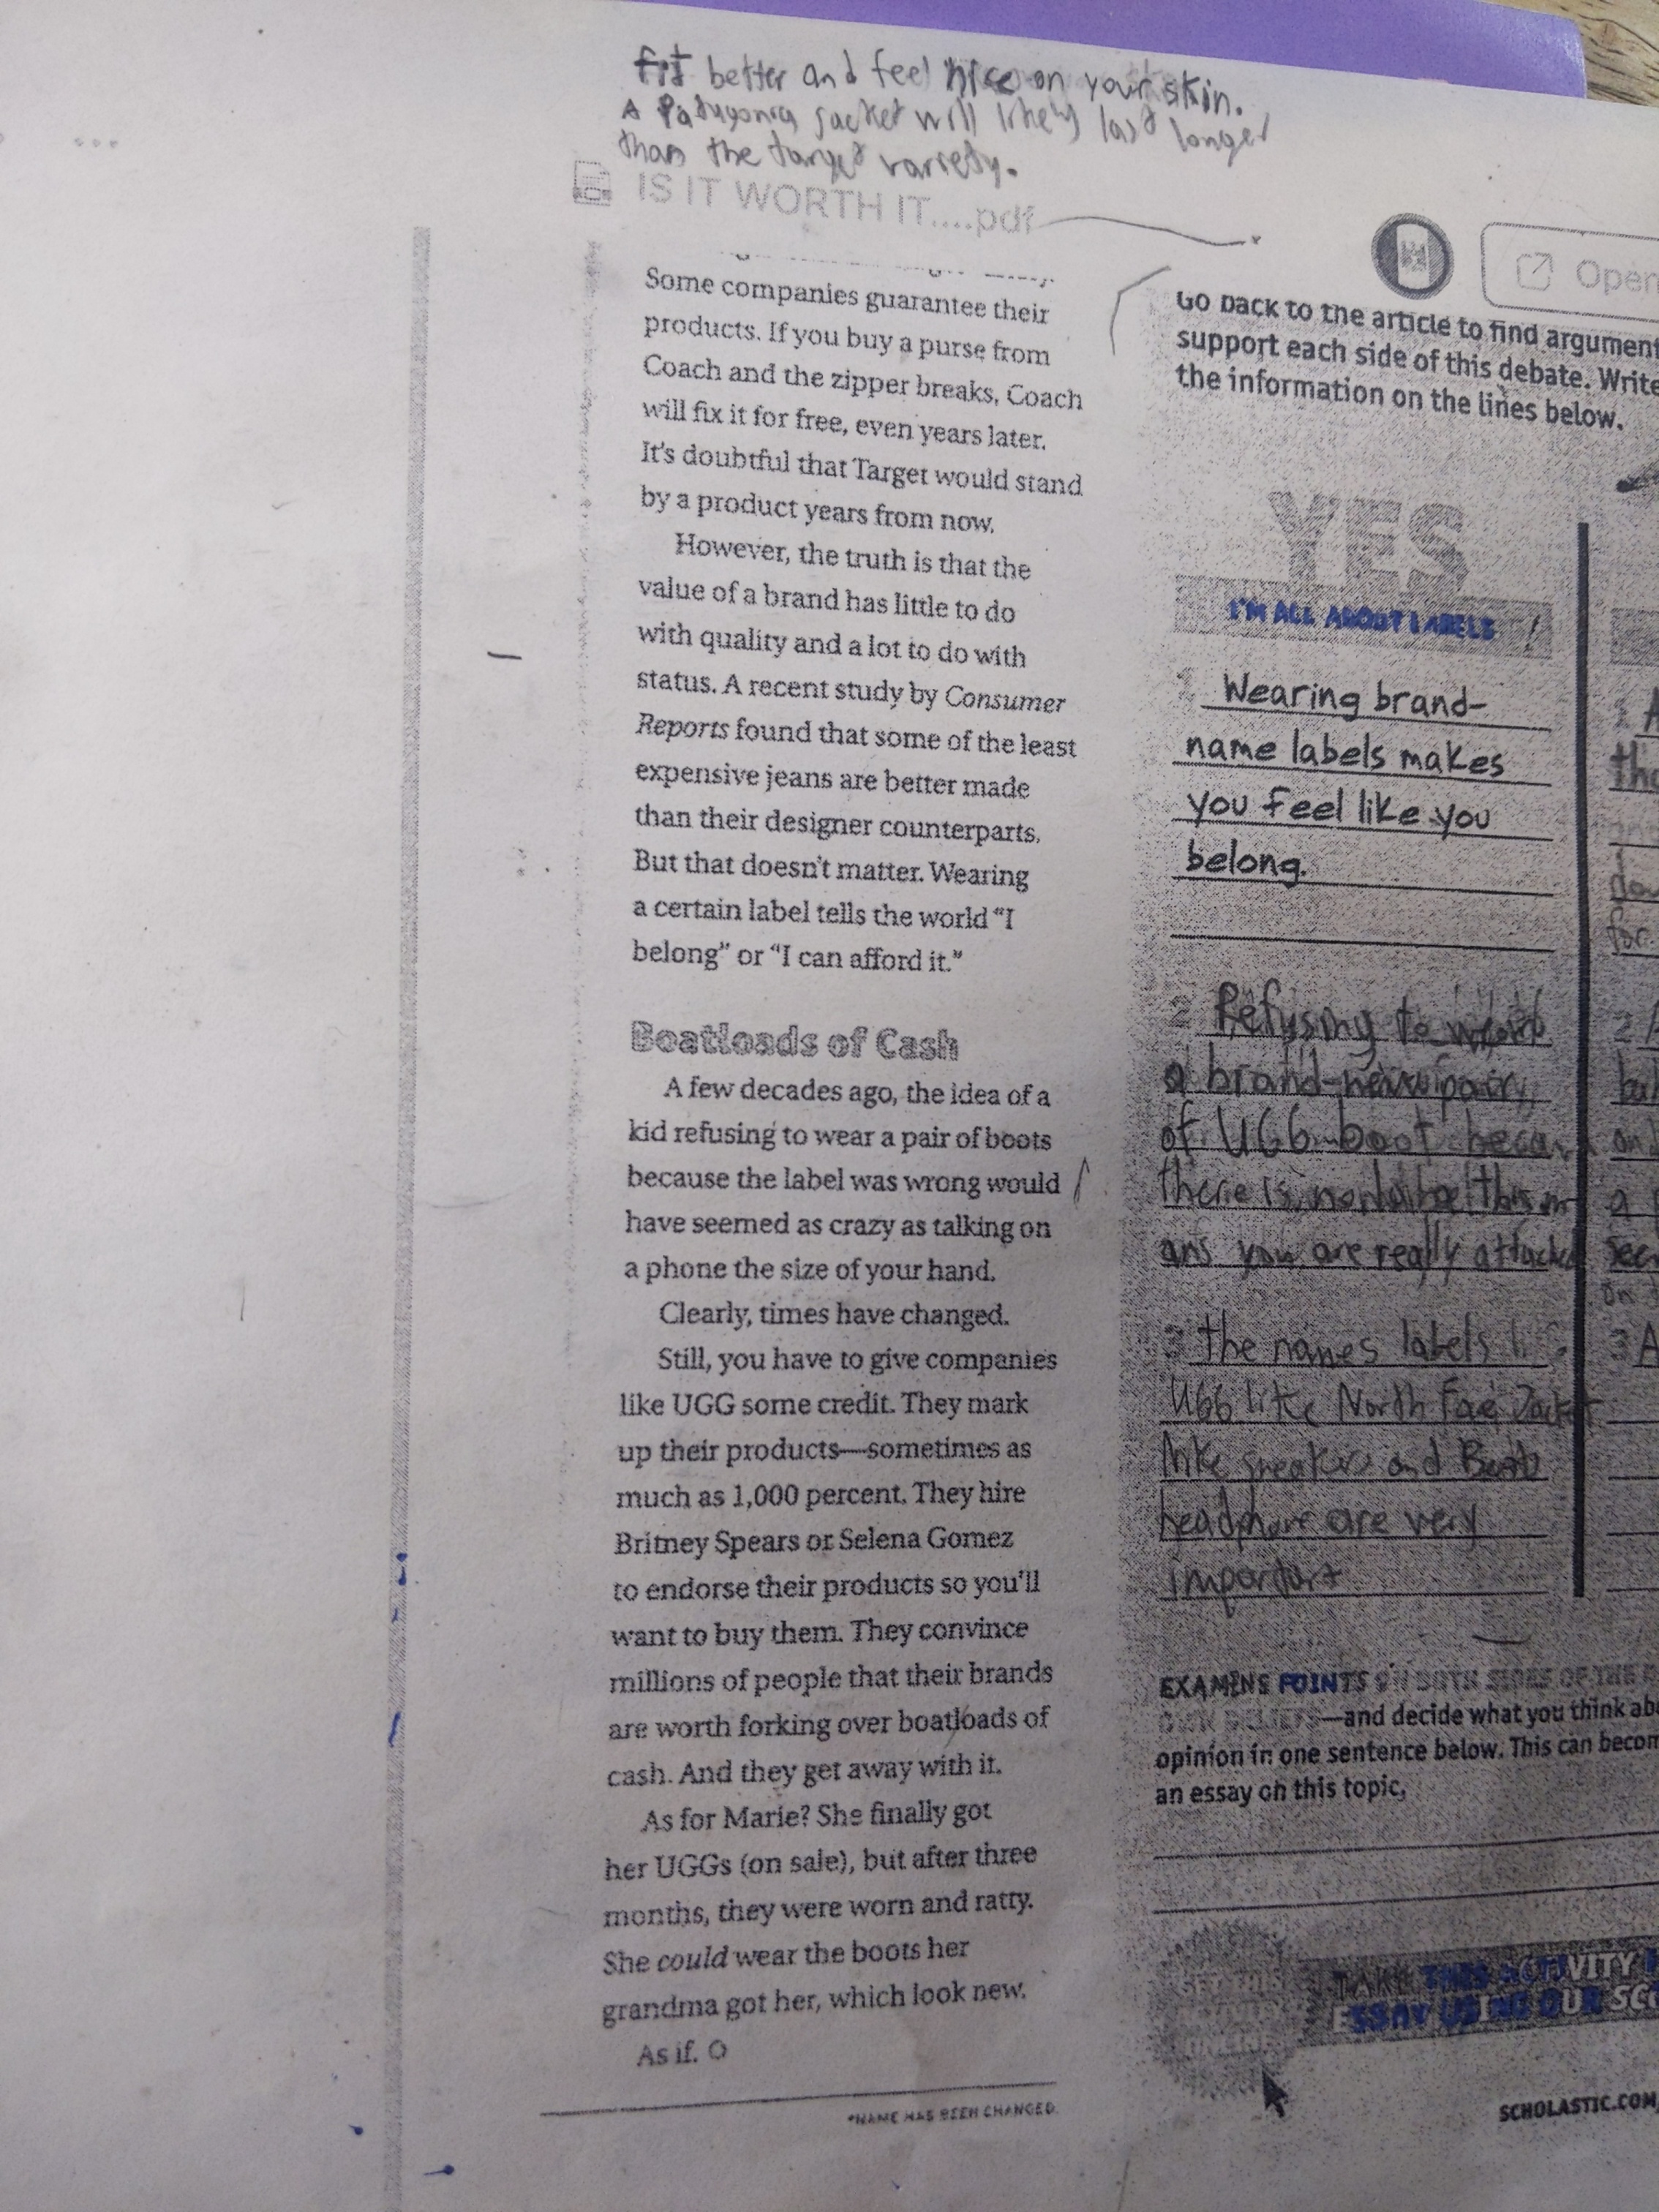 fit better and feel nice on your skin.
A Patagonia jacket will likely last longer
than the target variety.
IS IT WORTH IT....pdf
Open
Some companies guarantee their
products. If you buy a purse from
Coach and the zipper breaks, Coach
will fix it for free, even years later.
It's doubtful that Target would stand
by a product years from now.
However, the truth is that the
value of a brand has little to do
with quality and a lot to do with
status. A recent study by Consumer
Reports found that some of the least
expensive jeans are better made
than their designer counterparts.
But that doesn't matter. Wearing
a certain label tells the world "I
belong" or "I can afford it."
Boatloads of Cash
A few decades ago, the idea of a
kid refusing to wear a pair of boots
because the label was wrong would
have seemed as crazy as talking on
a phone the size of your hand.
Clearly, times have changed.
Still, you have to give companies
like UGG some credit. They mark
up their products—sometimes as
much as 1,000 percent. They hire
Britney Spears or Selena Gomez
to endorse their products so you'll
want to buy them. They convince
millions of people that their brands
are worth forking over boatloads of
cash. And they get away with it.
As for Marie? She finally got
her UGGs (on sale), but after three
months, they were worn and ratty.
She could wear the boots her
grandma got her, which look new.
As if.
*NAME HAS BEEN CHANGED.
Go back to the article to find argument
support each side of this debate. Write
the information on the lines below.
YES
I'M ALL ABOUT LABELS
1 Wearing brand-
name labels makes
you feel like you
belong.
2 Refusing to
a brand-new pair
of UGG boot
there is
you are really
3 the names labels
UGG like North Face Jacket
Nike sneakers and Beats
headphone are very
important
EXAMINE POINTS ON BOTH SIDES OF THE
OWN BELIEFS—and decide what you think
opinion in one sentence below. This can
an essay on this topic.
TAKE THIS ACTIVITY
ESSAY USING OUR
SCHOLASTIC.COM